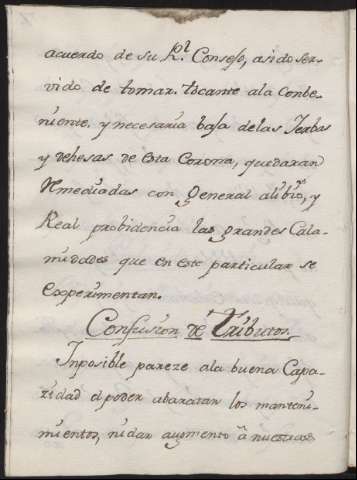 acuerdo de su Rl. Consejo, a sido ser-
vido de tomar. tocante ala Conbe-
niente. y necesaria baja de las Ierbas
y dehesas de esta Corona, quedaran
Rmediadas con general alibio, y
Real probidencia las grandes Cala-
midades que en este particular se
experimentan.
Confusion de Tributos.
Inposible pareze ala buena Capa-
zidad el poder abaratar los manteni-
mientos, ni dar augmento à nuestras